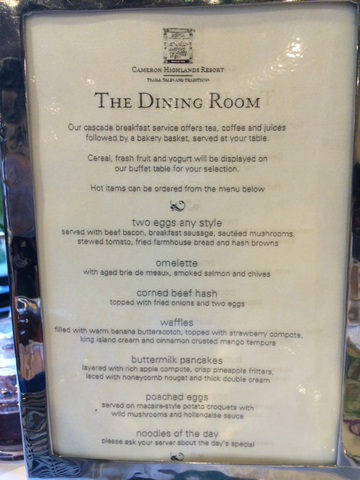 Cameron Highlands Resort
The Dining Room
Our cascade breakfast service offers tea, coffee and juices
followed by a bakery basket, served at your table.
Cereal, fresh fruit and yogurt will be displayed on
our buffet table for your selection.
Hot items can be ordered from the menu below
two eggs any style
served with beef bacon, breakfast sausage, sautéed mushrooms,
stewed tomato, fried farmhouse bread and hash browns
omelette
with aged brie de meaux, smoked salmon and chives
corned beef hash
topped with fried onions and two eggs
waffles
filled with warm banana butterscotch, topped with strawberry compote,
king island cream and cinnamon crusted mango tempura
buttermilk pancakes
layered with rich apple compote, crisp pineapple fritters,
laced with honeycomb nougat and thick double cream
poached eggs
served on macaire-style potato croquets with
wild mushrooms and hollandaise sauce
noodles of the day
please ask your server about the day's special